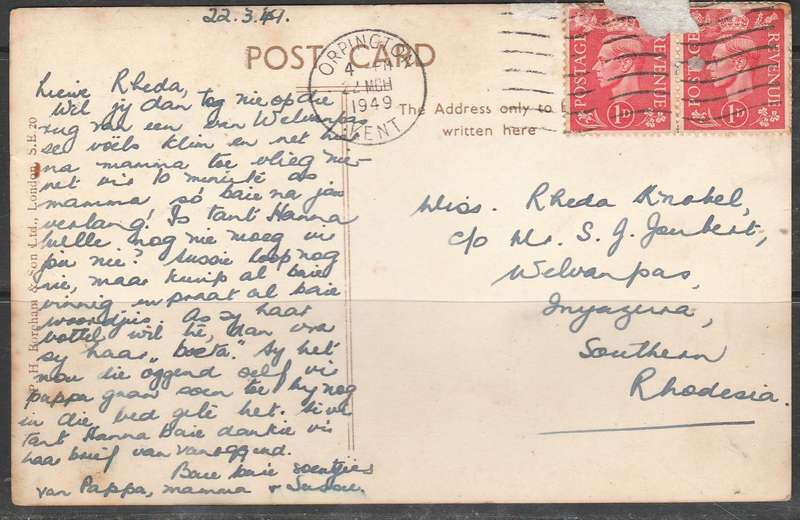 22.3.49.
POST CARD
ORPINGTON
4 - PM
22 MCH
1949
KENT
POSTAGE REVENUE
1D
POSTAGE REVENUE
1D
The Address only to
written here
P. H. Boreham & Son Ltd., London, S.E 20
Liewe Rheda,
Wil jy dan tog nie op die
rug van een van Welvanpas
se voëls klim en net
na mamma toe vlieg nie –
net vir 10 minute as
mamma só baie na jou
verlang! Is tant Hanna
hulle nog nie moeg vir
jou nie? Sussie loop nog
nie, maar kruip al baie
vinnig en praat al baie
woordjies. As sy haar
bottel wil hê, dan vra
sy haar „boeta." Sy het
nou die oggend self vir
pappa gaan soen toe hy nog
in die bed gelê het. Sê vir
tant Hanna Baie dankie vir
haar brief van vanoggend.
Baie baie soentjies
van Pappa, mamma & Sussie.
Miss. Rheda Knobel,
c/o Mr. S. J. Joubert,
Welvanpas,
Inyazura,
Southern
Rhodesia.